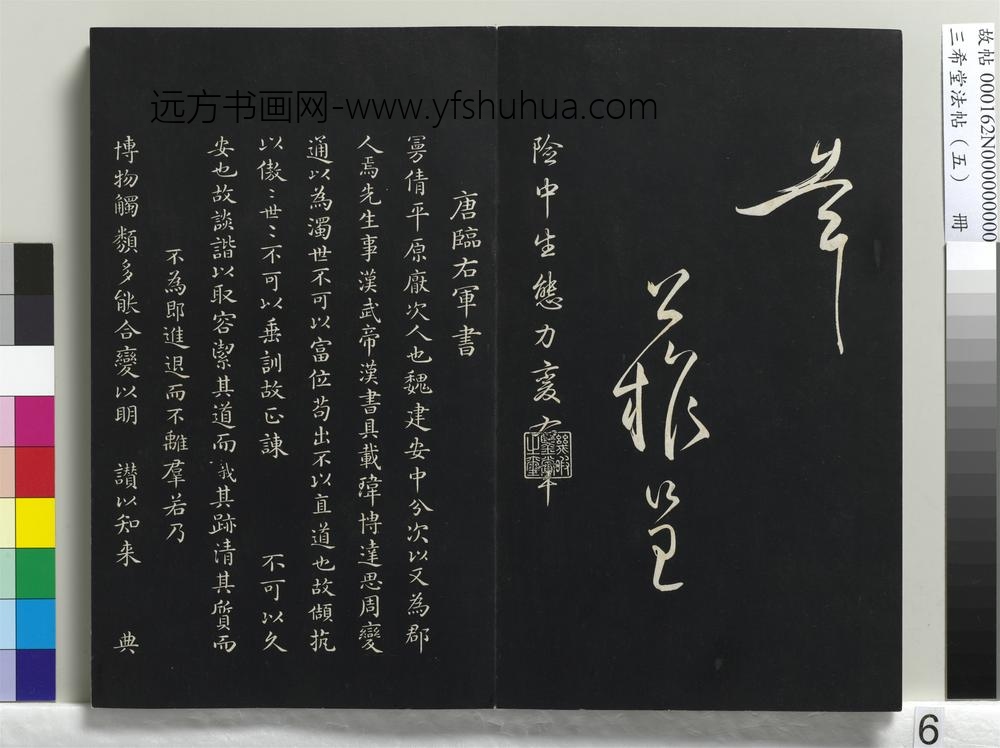 远方书画网-www.yfshuhua.com
故帖 000162N000000000
三希堂法帖（五） 冊
險中生態力變在筆
唐臨右軍書
曼倩平原厭次人也魏建安中分次以又為郡
人焉先生事漢武帝漢書具載瑋博達思周變
通以為濁世不可以富位苟出不以直道也故傾抗
以傲〻世〻不可以垂訓故正諫 不可以久
安也故談諧以取容潔其道而 其跡清其質而
不為即進退而不離羣若乃
博物觸類多能合變以明 讃以知来 典
6